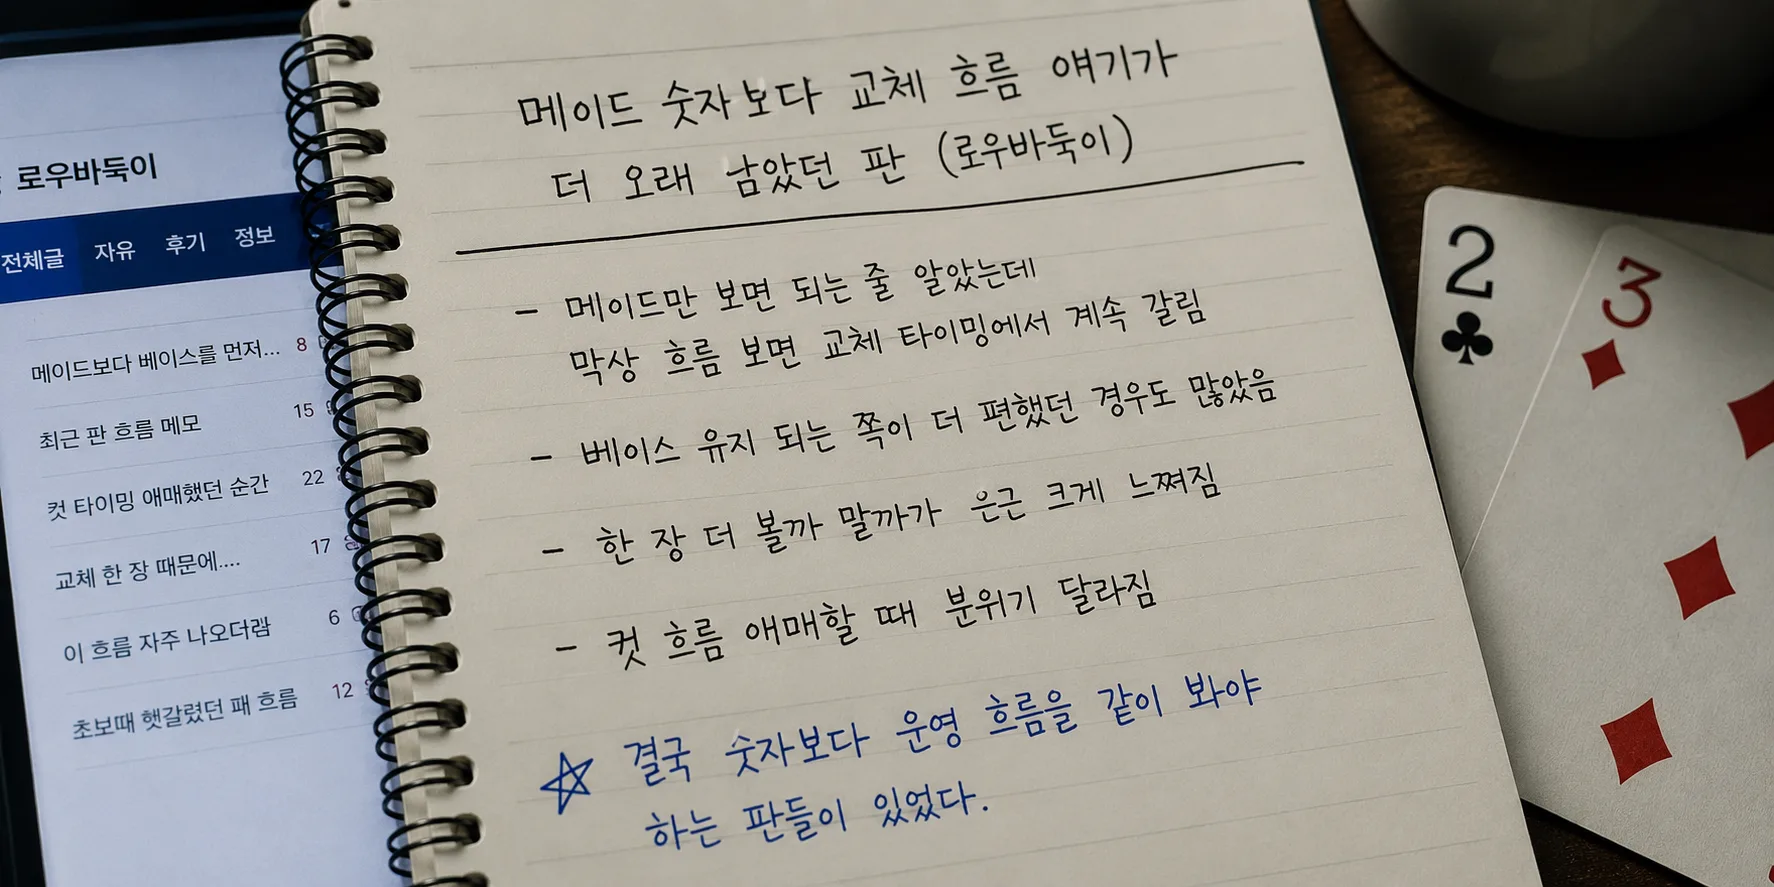 로우바둑이
전체글 자유 후기 정보
메이드보다 베이스를 먼저... 8
최근 판 흐름 메모 15
컷 타이밍 애매했던 순간 22
교체 한 장 때문에.... 17
이 흐름 자주 나오더람 6
초보때 헷갈렸던 패 흐름 12
메이드 숫자보다 교체 흐름 얘기가
더 오래 남았던 판 (로우바둑이)
- 메이드만 보면 되는 줄 알았는데
막상 흐름 보면 교체 타이밍에서 계속 갈림
- 베이스 유지 되는 쪽이 더 편했던 경우도 많았음
- 한 장 더 볼까 말까가 은근 크게 느껴짐
- 컷 흐름 애매할 때 분위기 달라짐
☆ 결국 숫자보다 운영 흐름을 같이 봐야
하는 판들이 있었다.
2
3